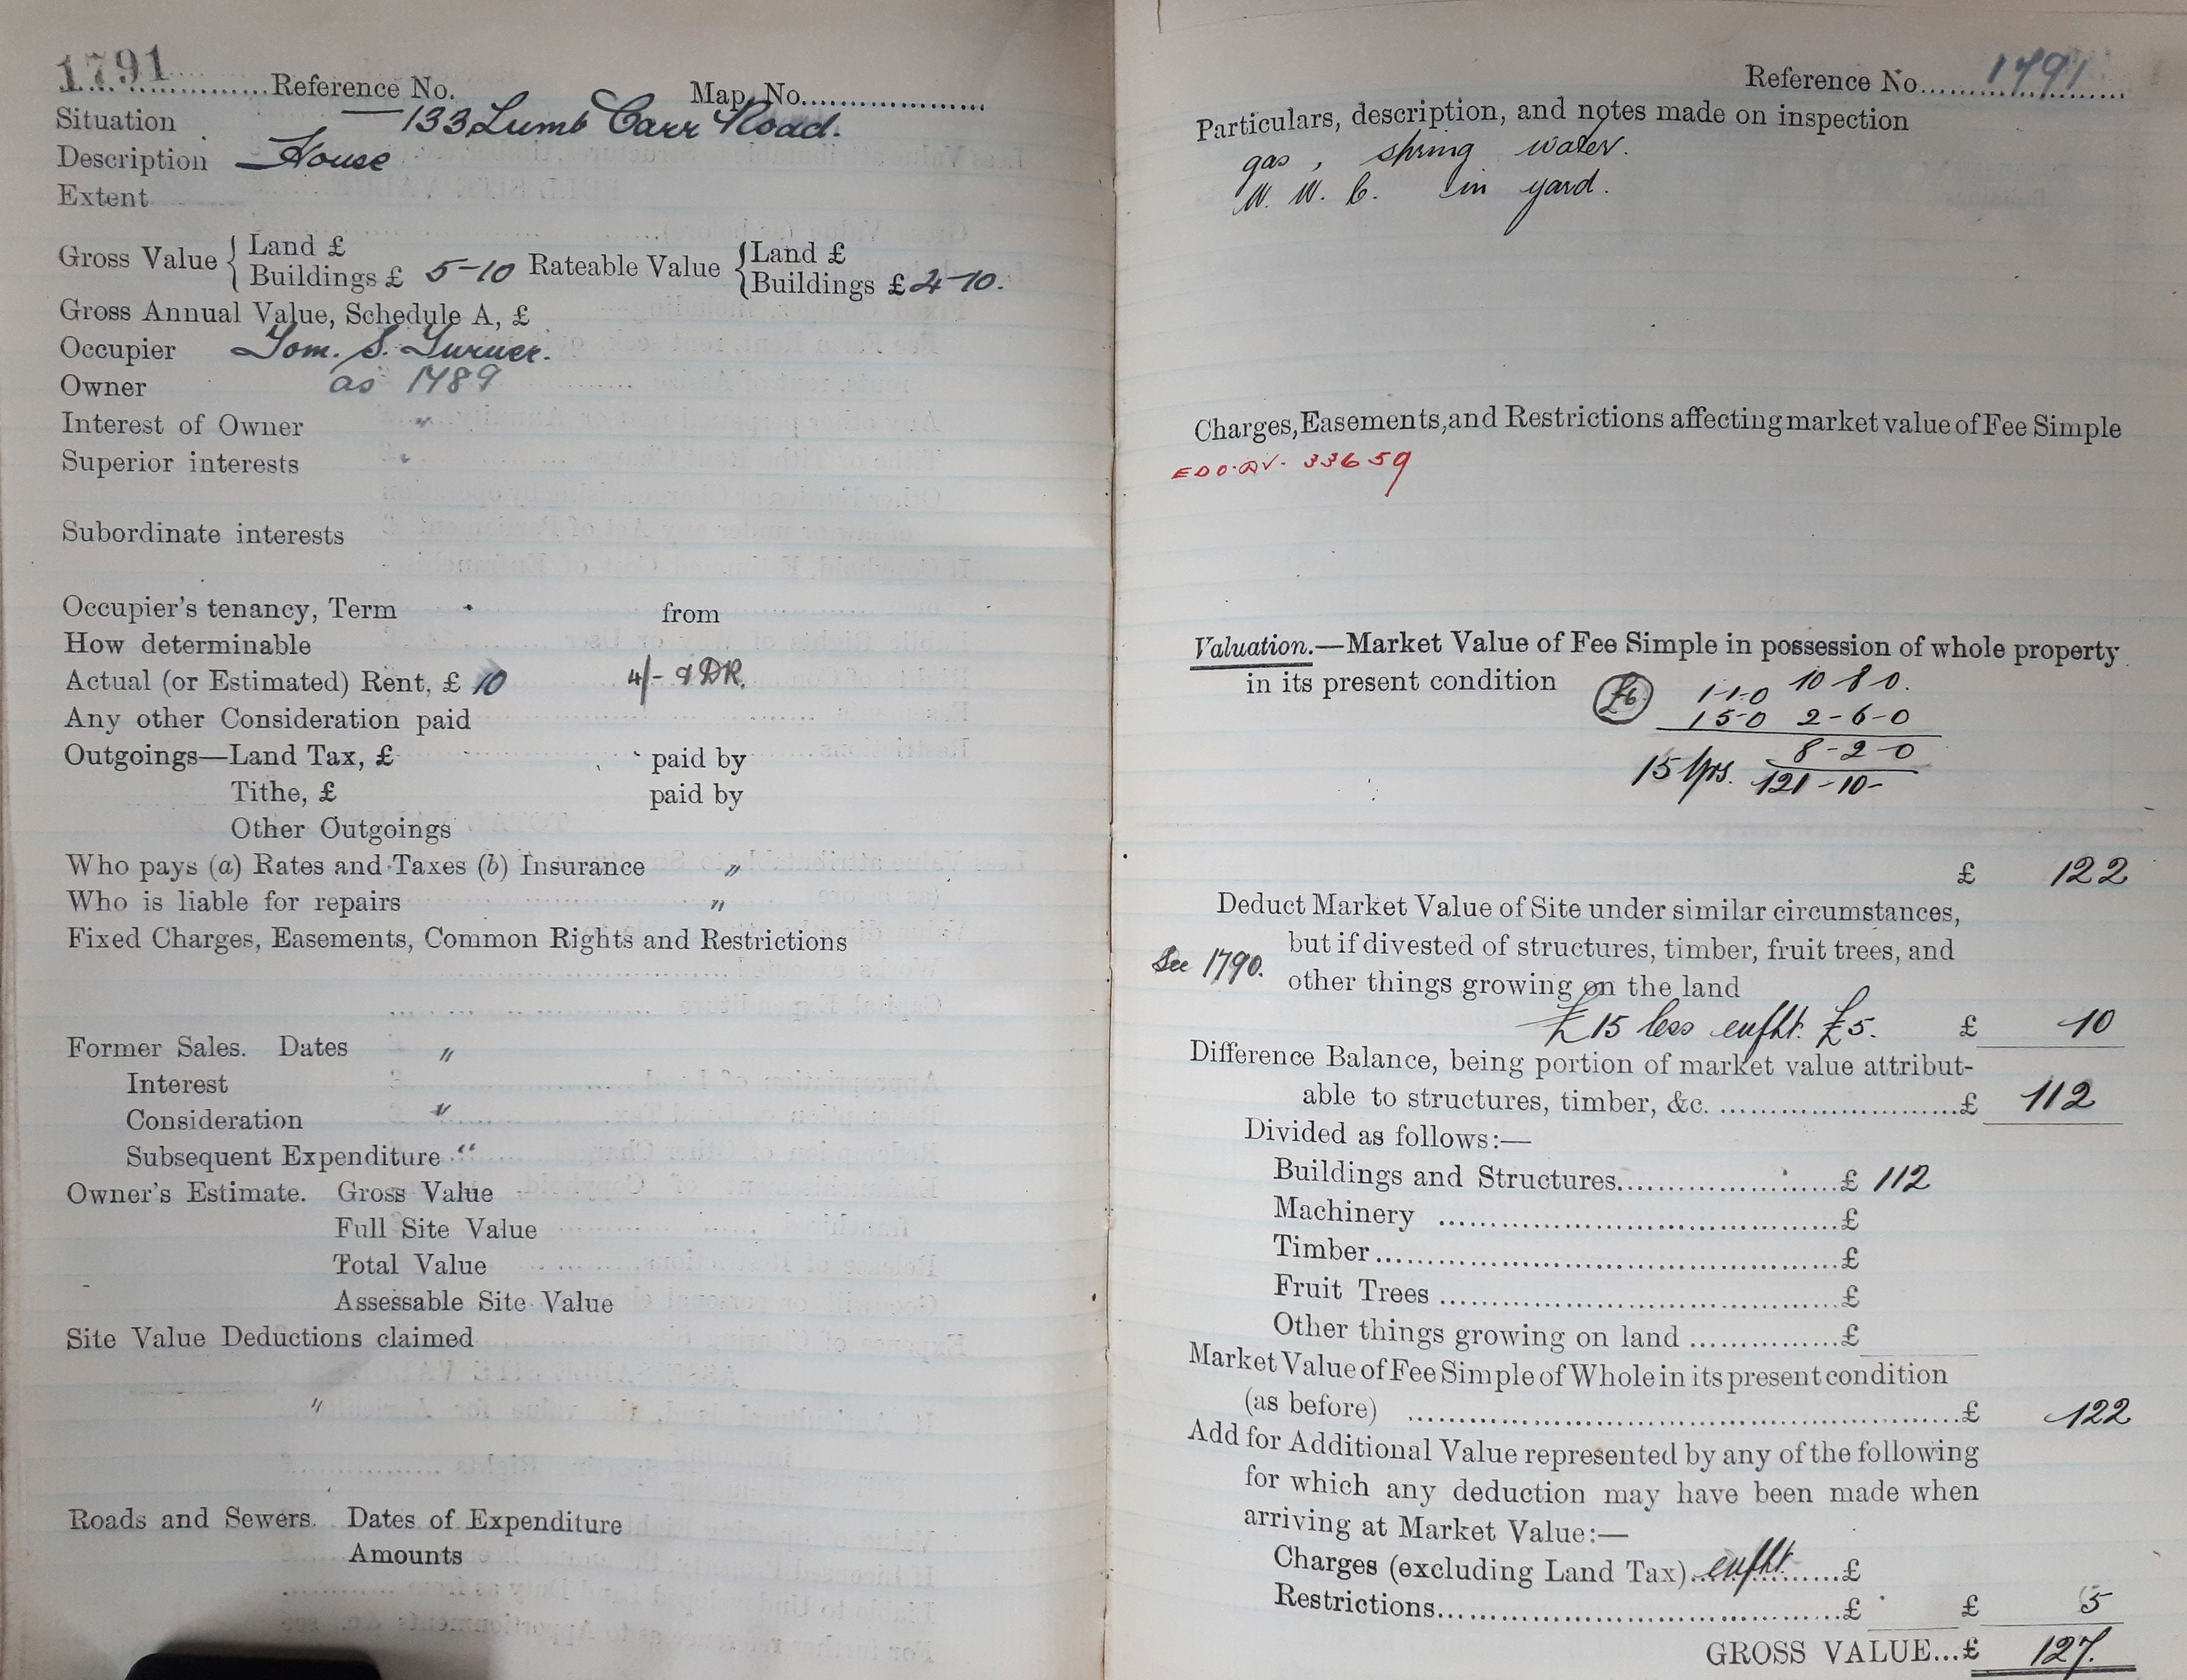 1791 Reference No. Map. No.
Situation 133 Lumb Carr Road.
Description House
Extent
Gross Value { Land £
Buildings £ 5-10 Rateable Value { Land £
Buildings £ 4-10.
Gross Annual Value, Schedule A, £
Occupier Tom. S. Turner.
Owner as 1789
Interest of Owner "
Superior interests "
Subordinate interests
Occupier's tenancy, Term from
How determinable
Actual (or Estimated) Rent, £ 10 4/- & DR.
Any other Consideration paid
Outgoings—Land Tax, £ paid by
Tithe, £ paid by
Other Outgoings
Who pays (a) Rates and Taxes (b) Insurance "
Who is liable for repairs "
Fixed Charges, Easements, Common Rights and Restrictions
Former Sales. Dates "
Interest
Consideration "
Subsequent Expenditure "
Owner's Estimate. Gross Value
Full Site Value
Total Value
Assessable Site Value
Site Value Deductions claimed
"
Roads and Sewers. Dates of Expenditure
Amounts
Reference No. 1791
Particulars, description, and notes made on inspection
gas, spring water.
W. W. C. in yard.
Charges, Easements, and Restrictions affecting market value of Fee Simple
33659
Valuation.—Market Value of Fee Simple in possession of whole property
in its present condition £6. 1-1-0 10 8 0.
15-0 2-6-0
8-2-0
15 yrs. 121-10-
£ 122
Deduct Market Value of Site under similar circumstances,
but if divested of structures, timber, fruit trees, and
See 1790. other things growing on the land
£15 less enfht. £5. £ 10
Difference Balance, being portion of market value attribut-
able to structures, timber, &c. £ 112
Divided as follows:—
Buildings and Structures £ 112
Machinery £
Timber £
Fruit Trees £
Other things growing on land £
Market Value of Fee Simple of Whole in its present condition
(as before) £ 122
Add for Additional Value represented by any of the following
for which any deduction may have been made when
arriving at Market Value:—
Charges (excluding Land Tax) enfht. £
Restrictions £ £ 5
GROSS VALUE...£ 127.